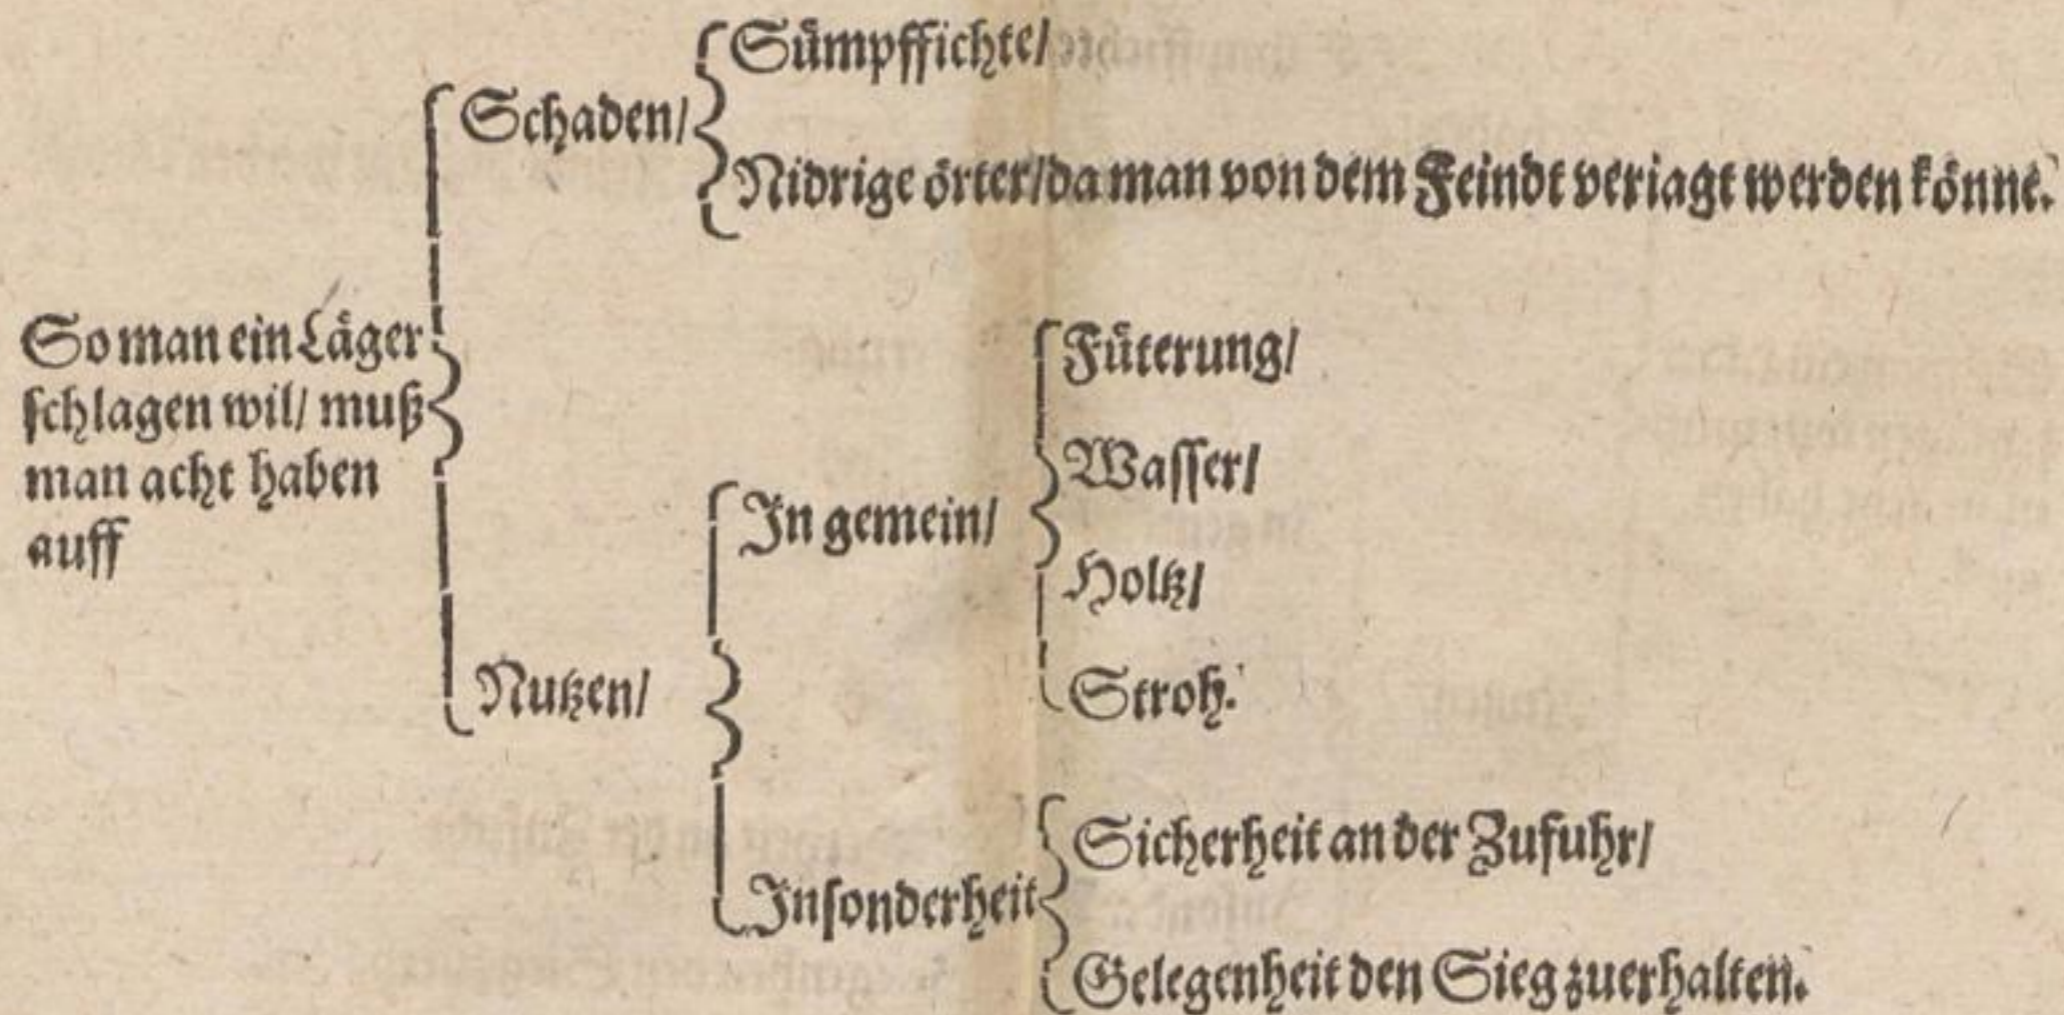 So man ein Läger
schlagen wil/ muß
man acht haben
auff
Schaden/
Sümpffichte/
Nidrige örter/da man von dem Feindt veriagt werden könne.
Nutzen/
In gemein/
Füterung/
Wasser/
Holtz/
Stroh.
Insonderheit
Sicherheit an der Zufuhr/
Gelegenheit den Sieg zuerhalten.